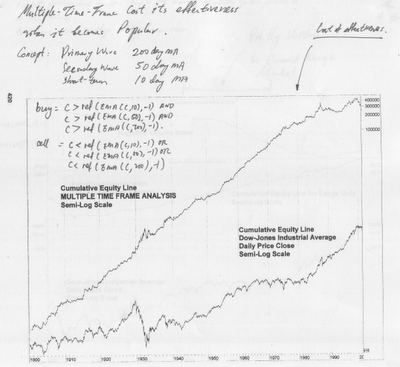 Multiple-Time-Frame Cost its effectiveness
when it becomes Popular.
Concept: Primary Wave 200 day MA
Secondary Wave 50 day MA
Short-term 10 day MA
Cost it effectiveness.
420
buy: C > ref (EMA(C,10),-1) AND
C > ref (EMA(C,50),-1) AND
C > ref (EMA(C,200),-1).
sell = C < ref (EMA(C,10),-1) OR
C < ref (EMA(C,50),-1) OR
C < ref (EMA(C,200),-1)
400000
300000
200000
100000
Cumulative Equity Line
MULTIPLE TIME FRAME ANALYSIS
Semi-Log Scale
Cumulative Equity Line
Dow-Jones Industrial Average
Daily Price Close
Semi-Log Scale
1900 1910 1920 1930 1940 1950 1960 1970 1980 1990 20